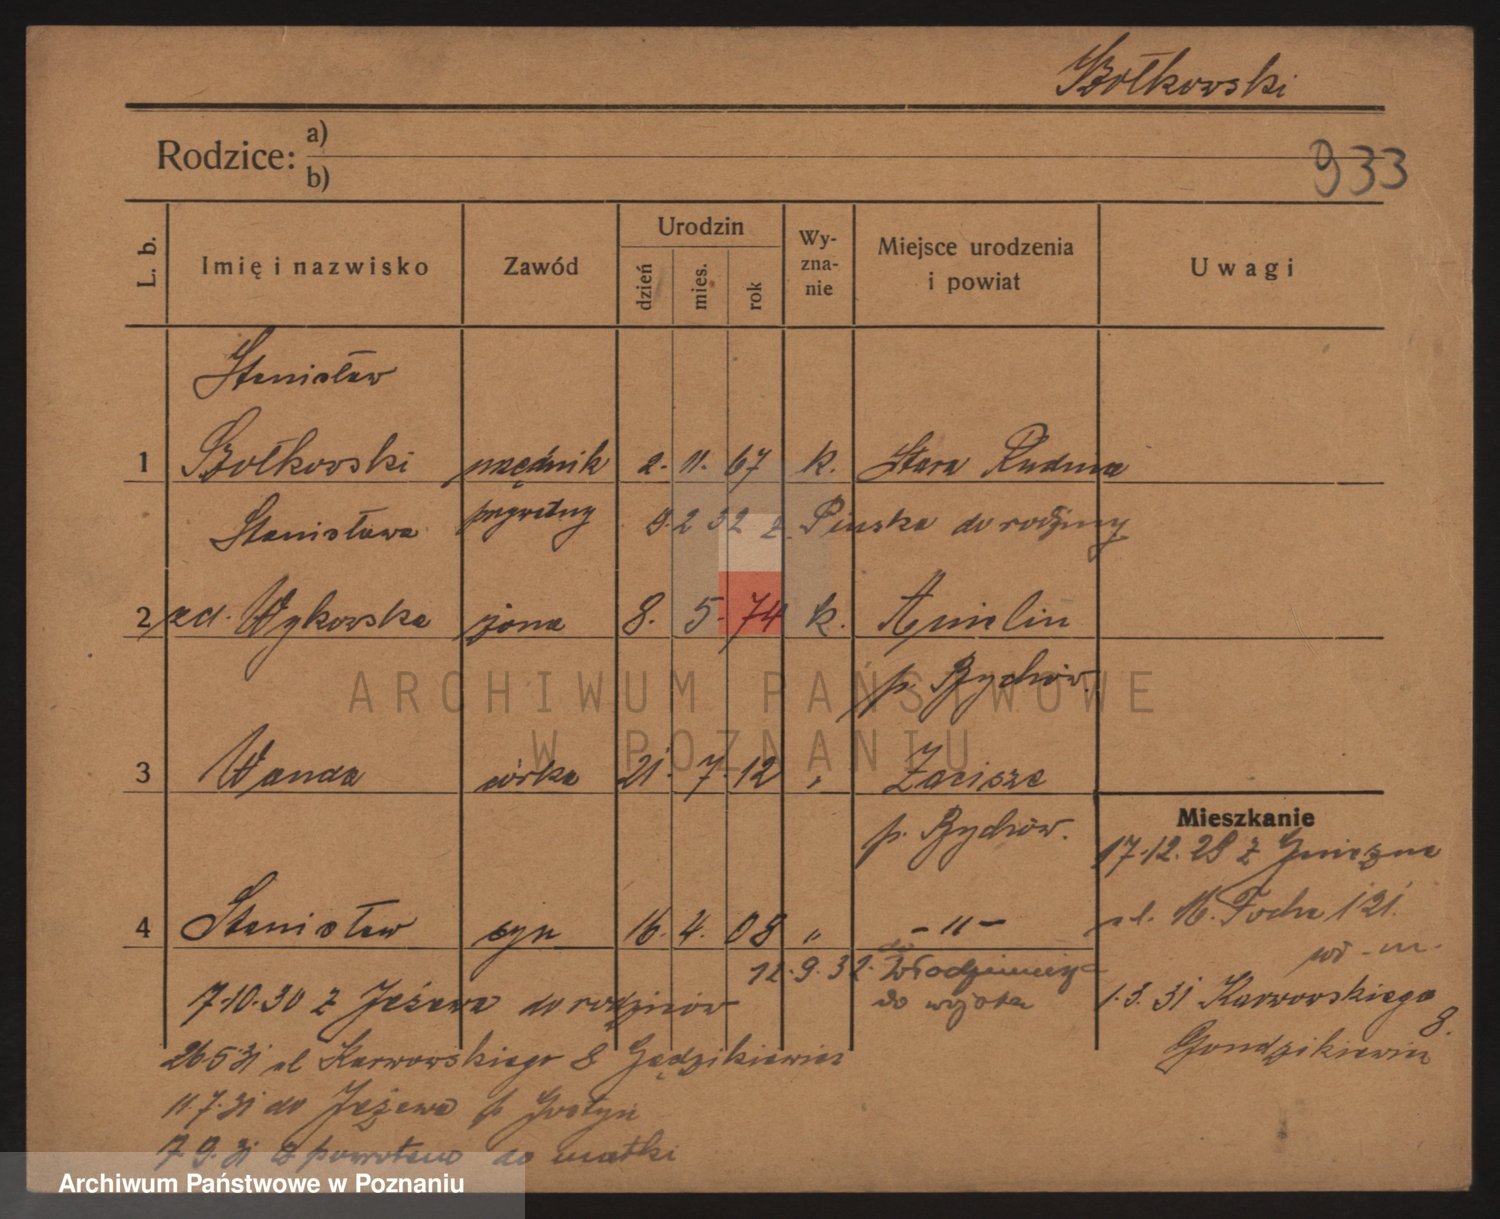 Szołkowski
Rodzice: a)
b)
933
L. b.
Imię i nazwisko
Zawód
Urodzin
dzień
mies.
rok
Wy-
zna-
nie
Miejsce urodzenia
i powiat
Uwagi
Stanisław
1 Szołkowski urzędnik 2. 11. 67 k. Stara Rudnia
prywatny
Stanisława 9.2 32 z Pińska do rodziny
2 zd. Wykowska żona 8. 5. 74 k. Amelin
p. Bychów.
3 Wanda córka 21. 7. 12 " Zacisze
p. Bychów.
4 Stanisław syn 16. 4. 08 " - " -
12.9.32. do Włodzimierza
do wojska
7.10.30 z Jeżewa do rodziców
26 5 31 ul Karwowskiego 8 Gędzikiewicz
11.7.31 do Jeżewa p Gostyń
7.9.31 z powrotem do matki
Mieszkanie
17.12.29 z Gniezna
ul. M. Focha 121.
wł - m.
1.3.31 Karwowskiego
8.
Gondzikiewicz
ARCHIWUM PAŃSTWOWE
W POZNANIU
Archiwum Państwowe w Poznaniu